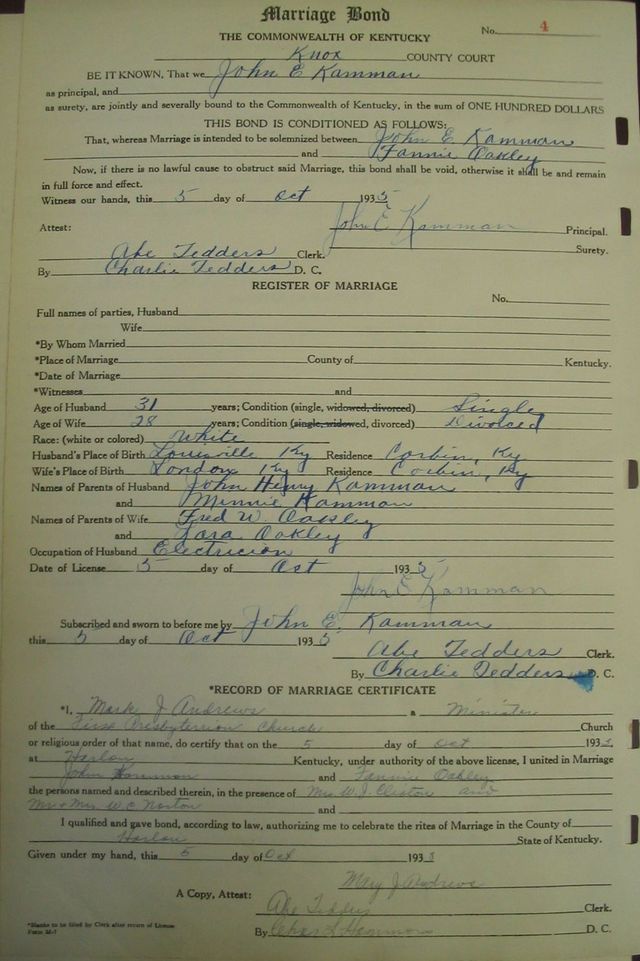 Marriage Bond
No. 4
THE COMMONWEALTH OF KENTUCKY
Knox COUNTY COURT
BE IT KNOWN, That we John E Kamman
as principal, and
as surety, are jointly and severally bound to the Commonwealth of Kentucky, in the sum of ONE HUNDRED DOLLARS
THIS BOND IS CONDITIONED AS FOLLOWS:
That, whereas Marriage is intended to be solemnized between John E. Kamman
and Fannie Oakley
Now, if there is no lawful cause to obstruct said Marriage, this bond shall be void, otherwise it shall be and remain
in full force and effect.
Witness our hands, this 5 day of Oct 1935
John E Kamman Principal.
Attest:
Surety.
Abe Tedders Clerk.
By Charlie Tedders D. C.
REGISTER OF MARRIAGE
No.
Full names of parties, Husband
Wife
*By Whom Married
*Place of Marriage County of Kentucky.
*Date of Marriage
*Witnesses and
Age of Husband 31 years; Condition (single, widowed, divorced) Single
Age of Wife 28 years; Condition (single, widowed, divorced) Divorced
Race: (white or colored) White
Husband's Place of Birth Louisville Ky Residence Corbin, Ky
Wife's Place of Birth London Ky Residence Corbin, Ky
Names of Parents of Husband John Henry Kamman
and Minnie Kamman
Names of Parents of Wife Fred W. Oakley
and Lara Oakley
Occupation of Husband Electricion
Date of License 5 day of Oct 1935
John E Kamman
Subscribed and sworn to before me by John E. Kamman
this 5 day of Oct 1935
Abe Tedders Clerk.
By Charlie Tedders D. C.
*RECORD OF MARRIAGE CERTIFICATE
*I, Mark J Andrews a Minister
of the First Presbyterion Church Church
or religious order of that name, do certify that on the 5 day of Oct 193
at Harlan Kentucky, under authority of the above license, I united in Marriage
John Kamman and Fannie Oakley
the persons named and described therein, in the presence of Mrs W. J. and
Mr & Mrs W. C. Norton and
I qualified and gave bond, according to law, authorizing me to celebrate the rites of Marriage in the County of
Harlan State of Kentucky.
Given under my hand, this 5 day of Oct 193
J Andrews
A Copy, Attest:
Abe Tedders Clerk.
By D. C.
*Blanks to be filled by Clerk after return of License
Form M-1